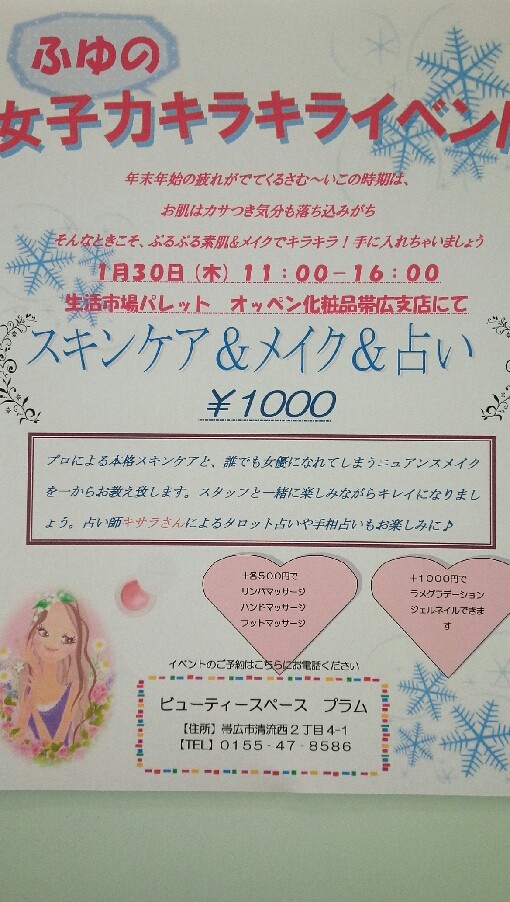 ふゆの
女子力キラキライベント
年末年始の疲れがでてくるさむ～いこの時期は、
お肌はカサつき気分も落ち込みがち
そんなときこそ、ぷるぷる素肌&メイクでキラキラ！手に入れちゃいましょう
1月30日（木）11：00－16：00
生活市場パレット　オッペン化粧品帯広支店にて
スキンケア＆メイク＆占い
￥1000
プロによる本格スキンケアと、誰でも女優になれてしまうニュアンスメイク
を一からお教え致します。スタッフと一緒に楽しみながらキレイになりまし
ょう。占い師キサラさんによるタロット占いや手相占いもお楽しみに♪
＋各500円で
リンパマッサージ
ハンドマッサージ
フットマッサージ
＋1000円で
ラメグラデーション
ジェルネイルできま
す
イベントのご予約はこちらにお電話ください
ビューティースペース　プラム
【住所】帯広市清流西2丁目4-1
【TEL】0155-47-8586